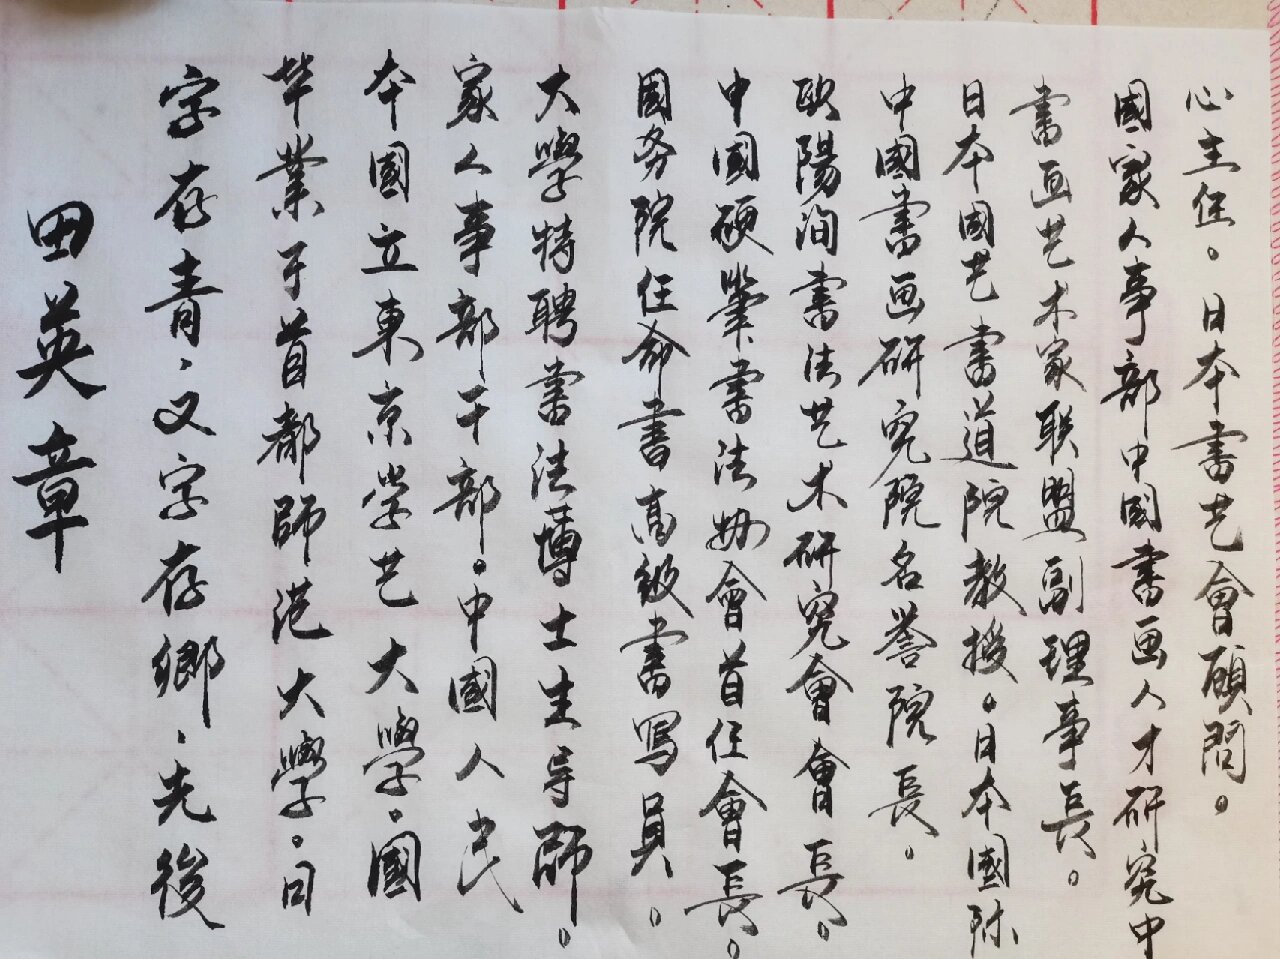 田英章
字存青、文字存卿、先後
毕業于首都師范大學。日
本國立東京学艺大學。國
家人事部干部。中國人民
大學特聘書法博士生导師。
國务院任命書高级書写員。
中國硬筆書法协會首任會長。
欧陽询書法艺术研究會會長。
中國書画研究院名誉院長。
日本國艺書道院教授。日本國际
書画艺术家联盟副理事長。
國家人事部中國書画人才研究中
心主任。日本書艺會顾問。